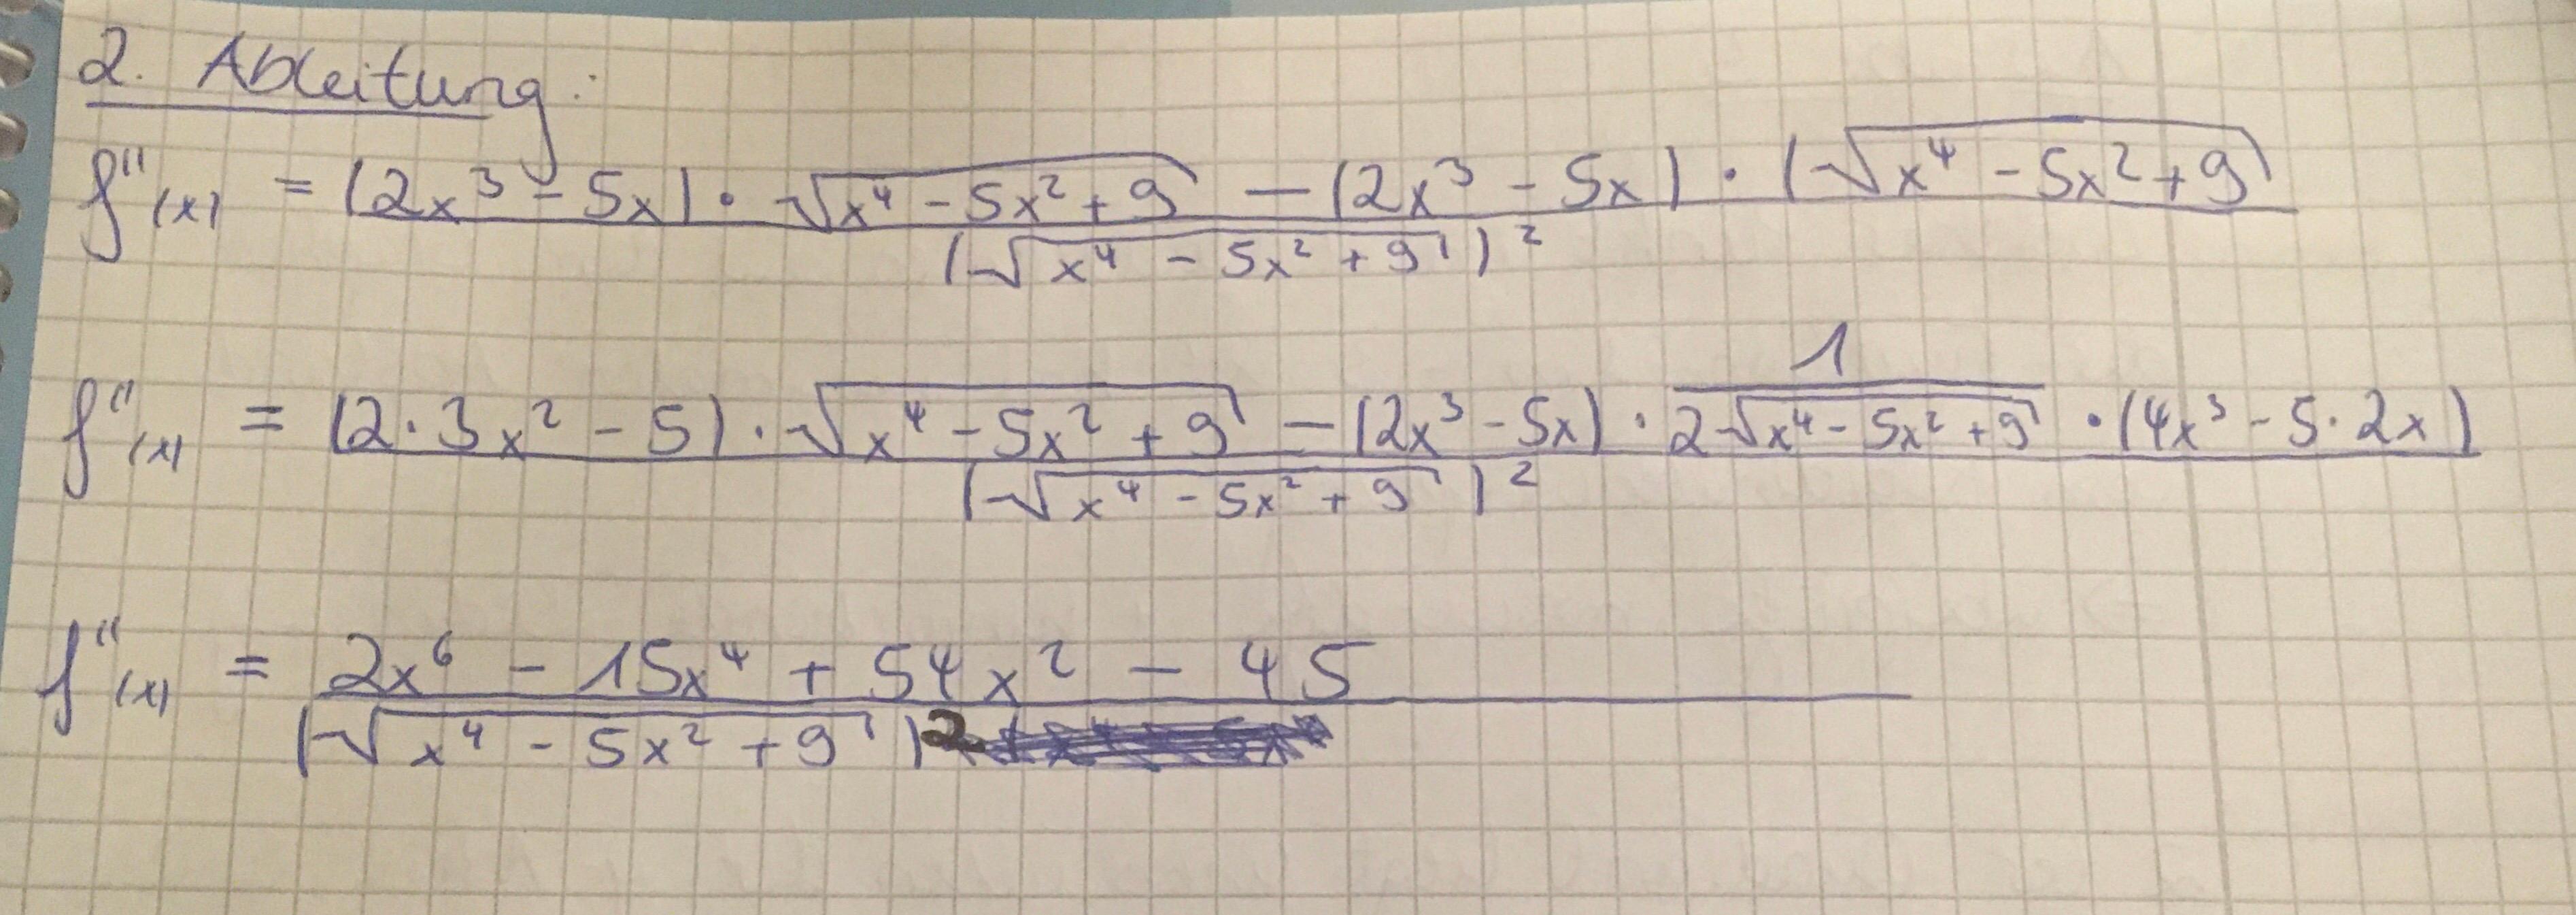 2. Ableitung:
f''(x) = (2x³ - 5x) · √(x⁴ - 5x² + 9) - (2x³ - 5x) · (√(x⁴ - 5x² + 9)
(√(x⁴ - 5x² + 9))²
1
f''(x) = (2·3x² - 5) · √(x⁴ - 5x² + 9) - (2x³ - 5x) · 2√(x⁴ - 5x² + 9) · (4x³ - 5·2x)
(√(x⁴ - 5x² + 9))²
f''(x) = 2x⁶ - 15x⁴ + 54x² - 45
(√(x⁴ - 5x² + 9))2